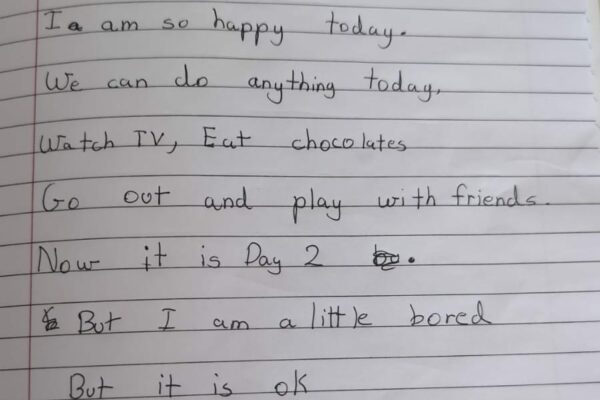 I am so happy today.
We can do anything today,
Watch TV, Eat chocolates
Go out and play with friends.
Now it is Day 2 .
But I am a little bored
But it is ok